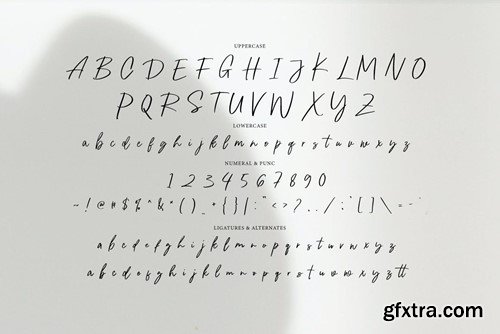 UPPERCASE
A B C D E F G H I J K L M N O
P Q R S T U V W X Y Z
LOWERCASE
a b c d e f g h i j k l m n o p q r s t u v w x y z
NUMERAL & PUNC
1 2 3 4 5 6 7 8 9 0
~ ! @ # $ % ^ & * ( ) _ + { } | : " < > ? . , / ; ' [ ] \ = - `
LIGATURES & ALTERNATES
a b c d e f g h i j k l m n o p q r s t u v w x y z
a b c d e f g h i j k l m n o p q r s t u v w x y z tt
gfxtra.com